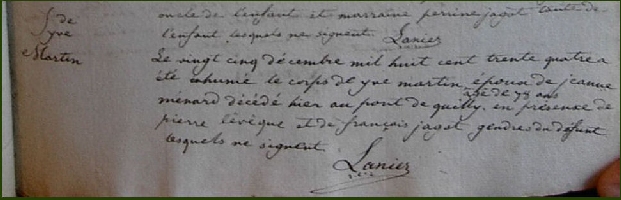 S. de
yve
Martin
oncle de l'enfant et marraine perrine jagot tante de
l'enfant lesquels ne signent. Lanier
Le vingt cinq décembre mil huit cent trente quatre a
été inhumé le corps de yve martin époux de jeanne
âgé de 78 ans
ménard décédé hier au pont de quilly, en présence de
pierre lévêque et de françois jagot, gendres du défunt
lesquels ne signent.
Lanier